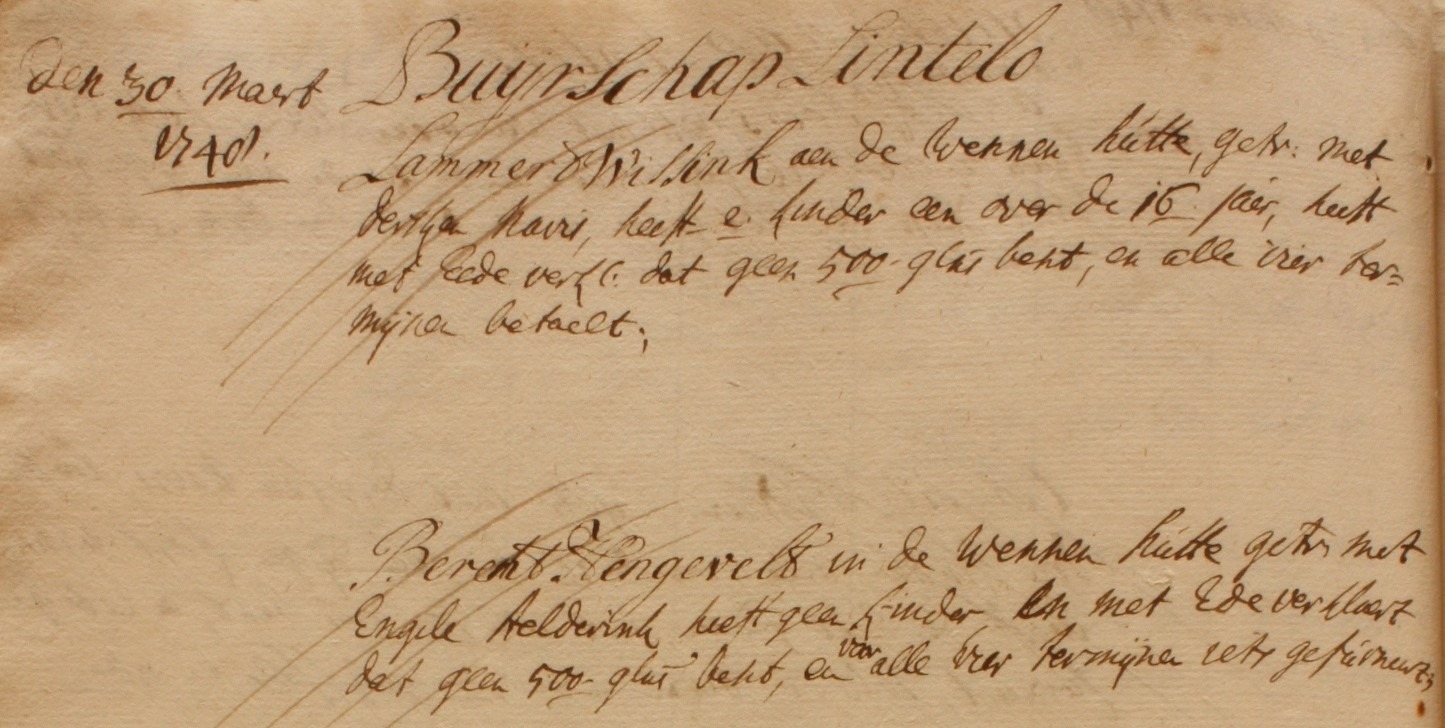 Den 30. Maert
1748.
Buijrschap Lintelo
Lammert Wissink aen de Wennen hútte, getr: met
Dersken Navis, heeft 2. kinder een over de 16. jaer, heeft
met Eede verkl: dat geen 500 glns besit, en alle vier ter=
mijnen betaelt;
Berent Hengevelt in de Wennen hútte getr met
Engele Helderink heeft geen kinder en met Ede verklaert
dat geen 500 glns besit, en voor alle vier termijnen iets gefúrneert;